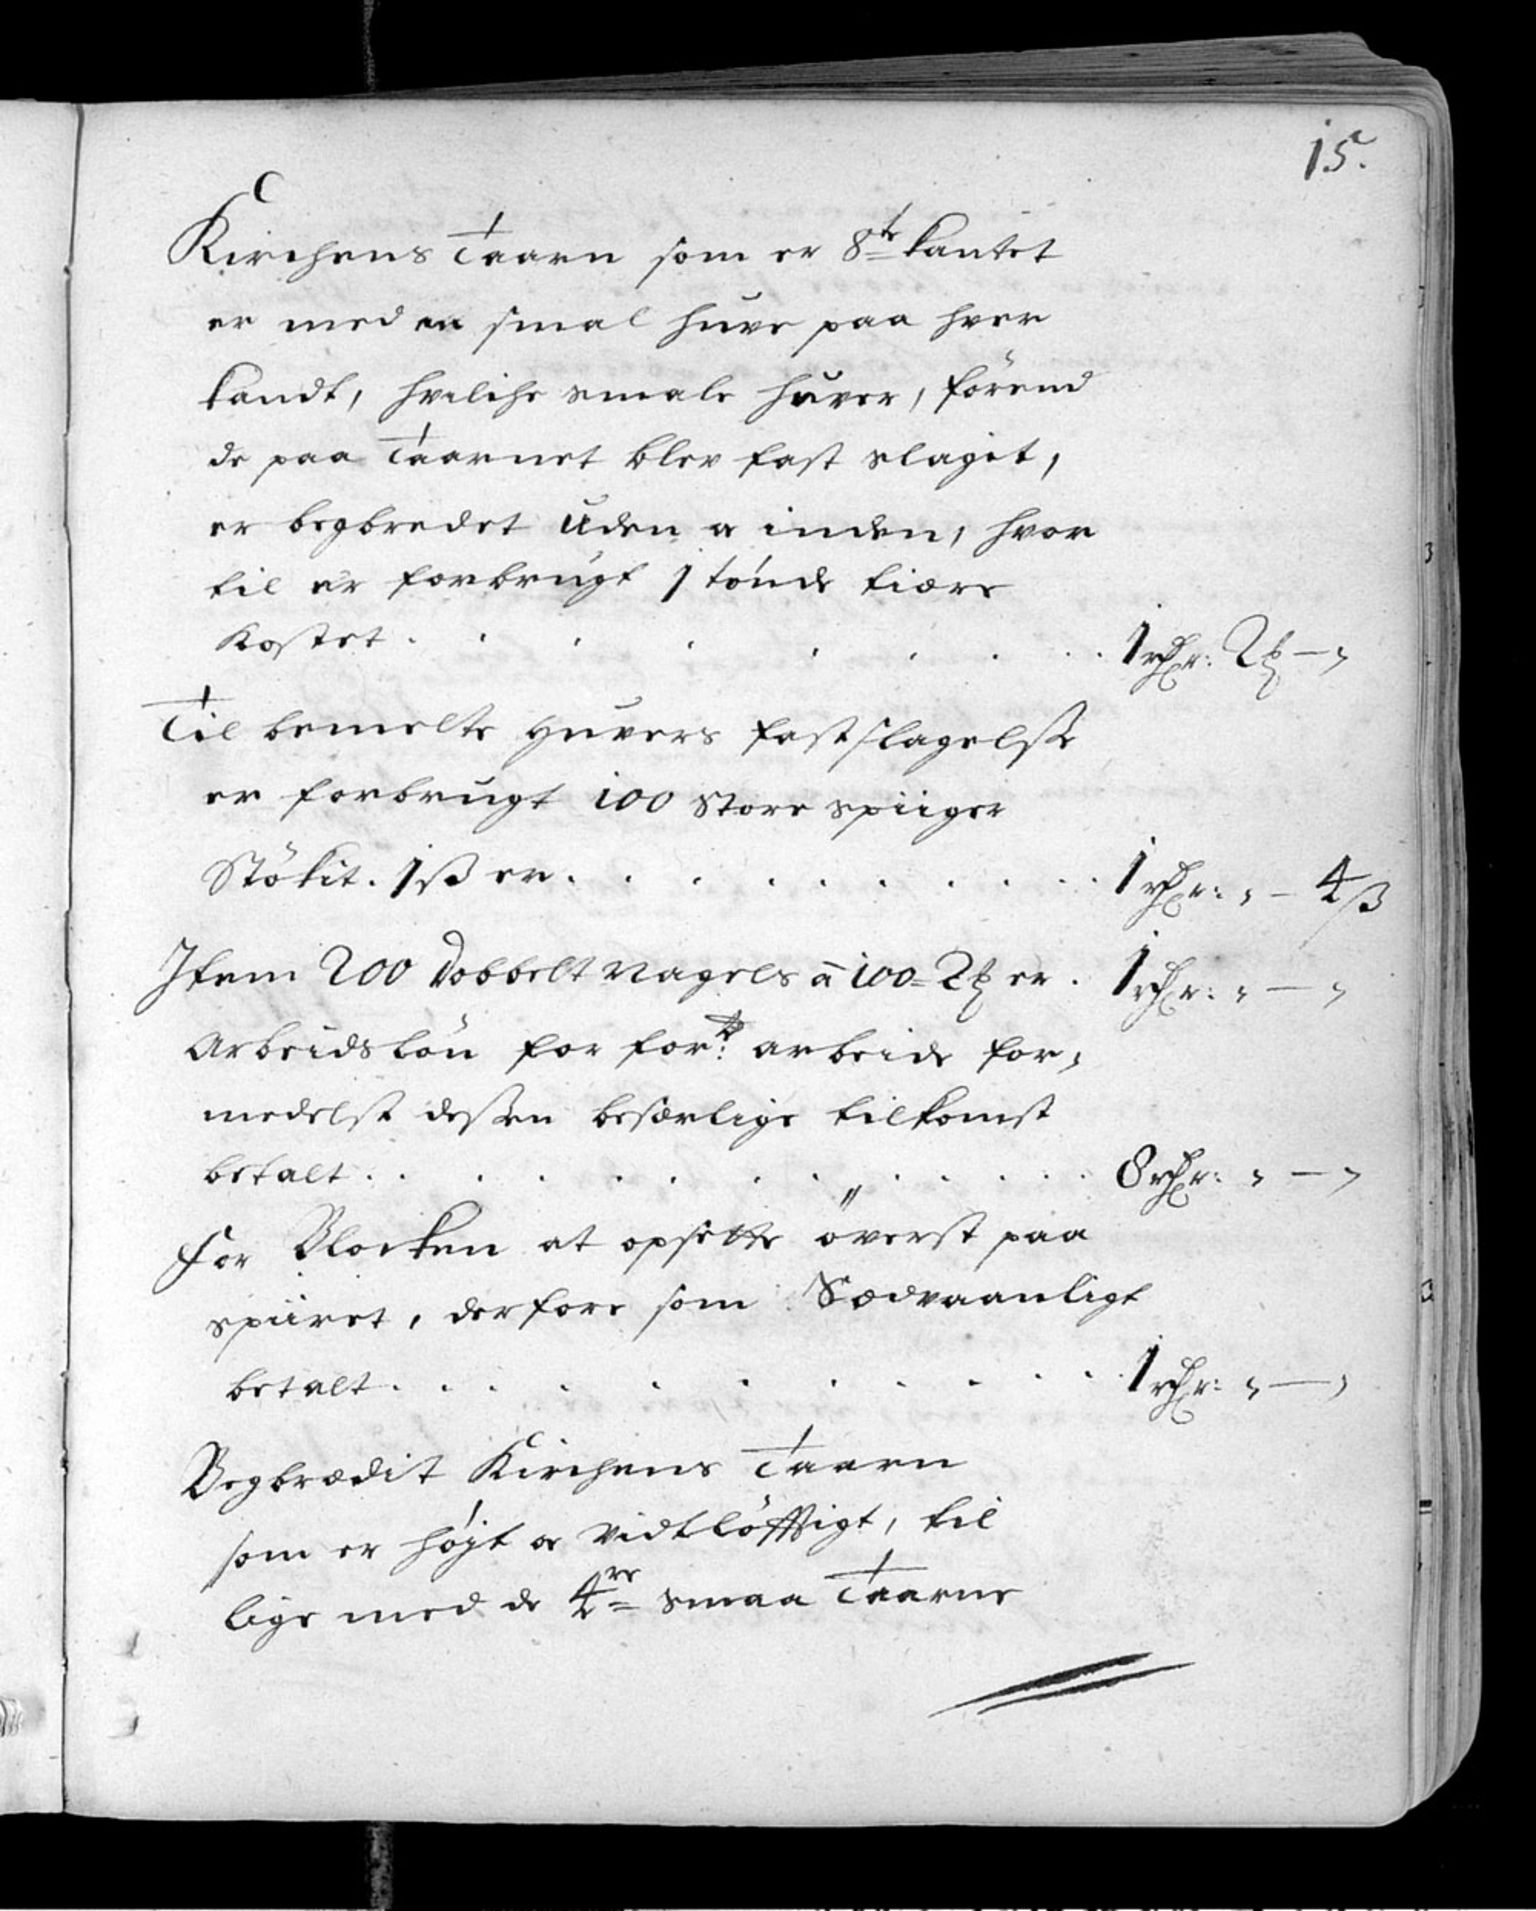 15.
Kirchens Taarn som er 8te kantet
er med en smal huve paa hver
kandt, hvilche smale huver, förend
de paa Taarnet blev fast slagit,
er begbredet uden a inden, hvor
til er forbrugt 1 tönde tiære
kostet . . . . . . . . 1 rdr: 2 ₻ — „
Til bemelte huvers fastslagelsse
er forbrugt 100 store spiiger
Stökit. 1 ß er . . . . . . . . . 1 rdr: „ — 4 ß
Item 200 dobbelt nagels a 100 = 2 ₻ er . 1 rdr: „ — „
Arbeidslön for forte: arbeide for,
medelst dessen besværlige tilkomst
betalt . . . . . . . . . . . 8 rdr: „ — „
For Blocken at opsette överst paa
spiiret, derfore som Sædvaanligt
betalt . . . . . . . . . . 1 rdr: „ — „
Begbrædit Kirchens Taarn
som er höjt a vidtlöfftigt, til
lige med de 4re smaa Taarne